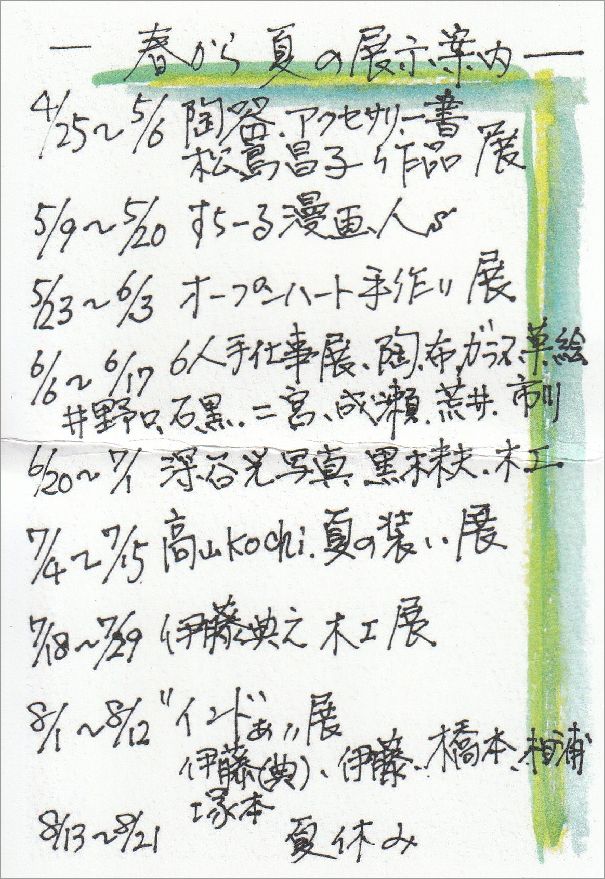 ― 春から夏の展示案内 ―
4/25〜5/6 陶器、アクセサリー書
松島昌子 作品 展
5/9〜5/20 すちーる漫画、人's
5/23〜6/3 オープンハート手作り展
6/6〜6/17 6人手仕事展、陶、布、ガラス、革絵
井野口、石黒、二宮、成瀬、荒井、市川
6/20〜7/1 深谷光写真、黒木、木工
7/4〜7/15 高山Kochi、夏の装い展
7/18〜7/29 伊藤典之 木工展
8/1〜8/12 "インドぁ"展
伊藤(典)、伊藤、橋本、相浦
塚本
8/13〜8/21 夏休み